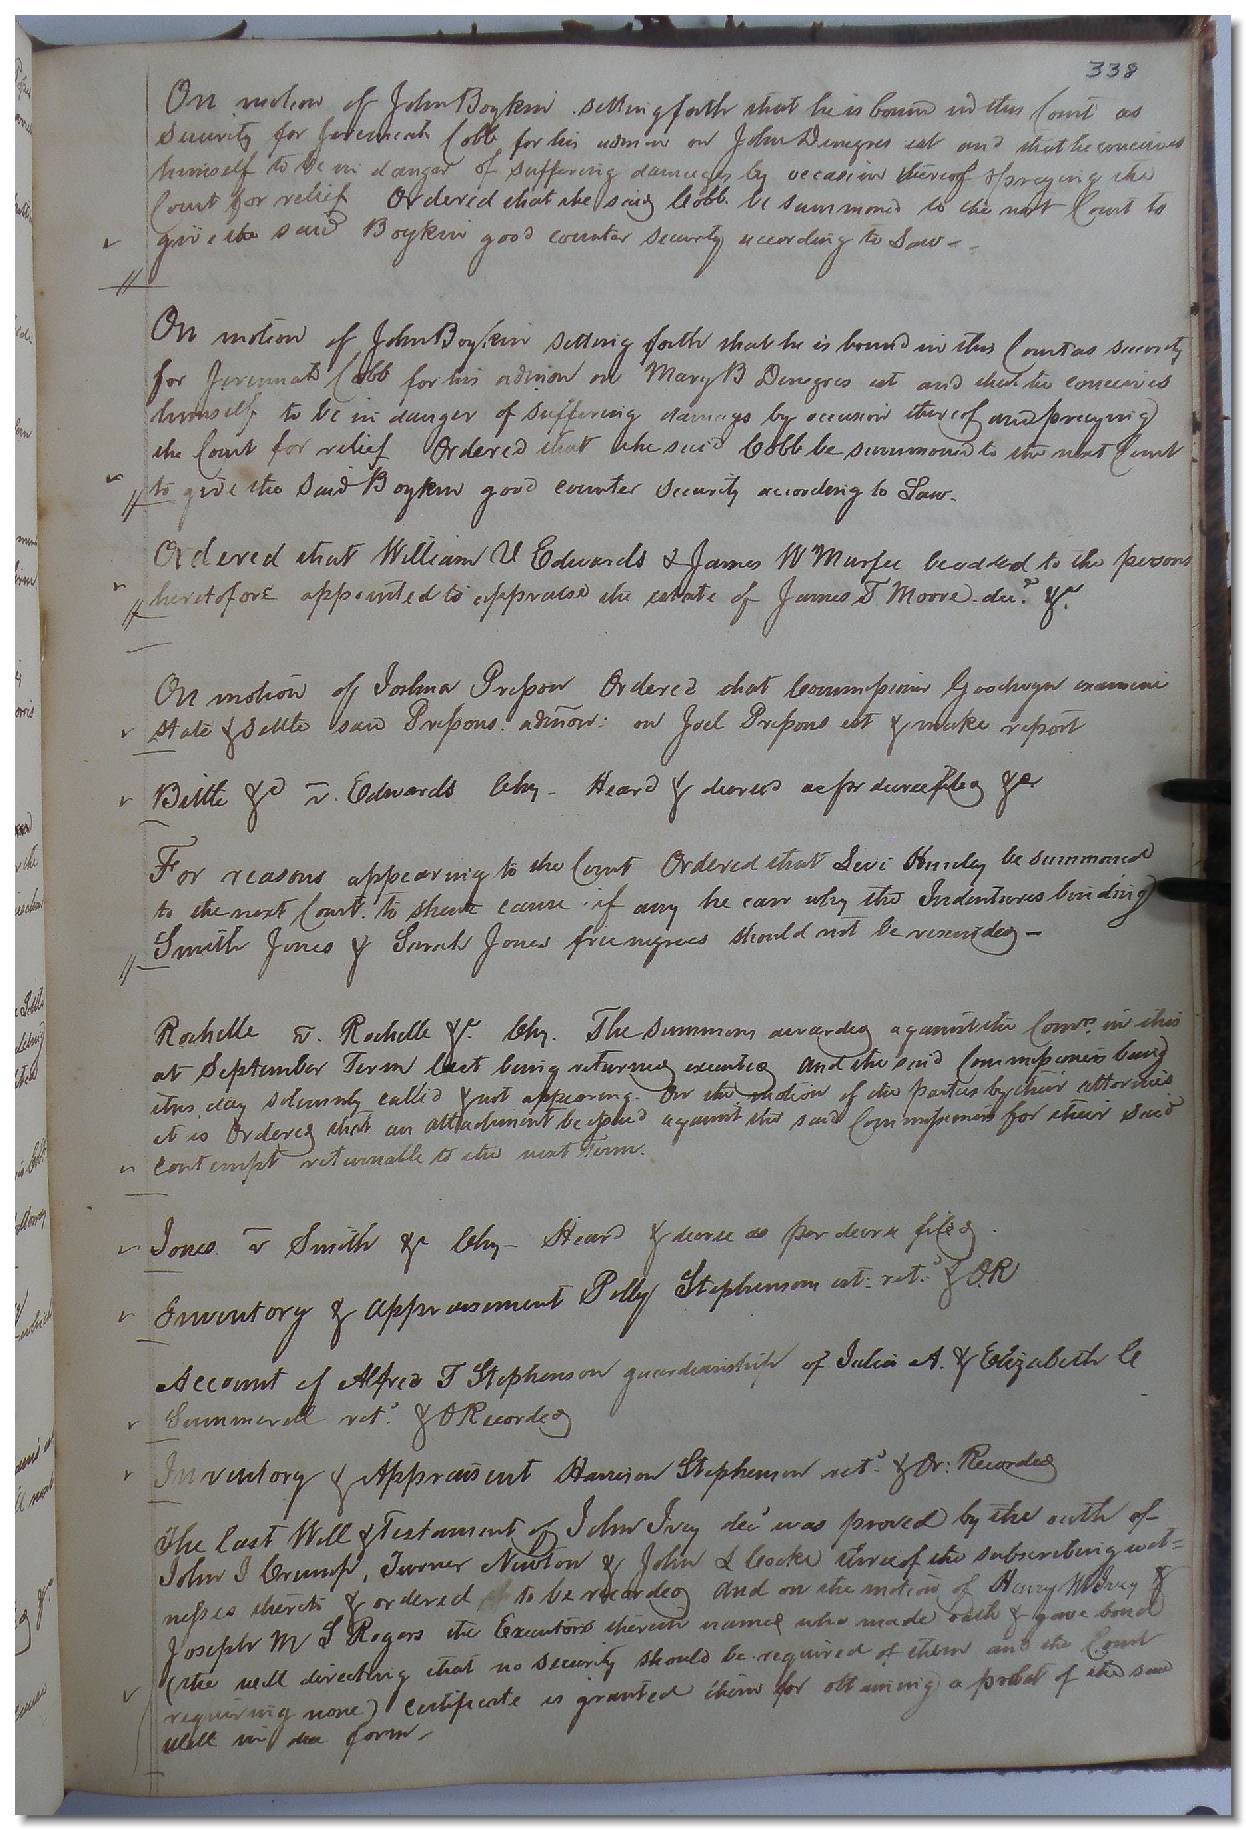 338
On motion of John Boykin setting forth that he is bound in this Court as
security for Jeremiah Cobb for his admon on John Denegres est and that he conceives
himself to be in danger of suffering damages by occasion thereof & praying the
Court for relief Ordered that the said Cobb be summoned to the next Court to
give the said Boykin good counter security according to Law -
On motion of John Boykin setting forth that he is bound in this Court as security
for Jeremiah Cobb for his admon on Mary B Denegres est and that he conceives
himself to be in danger of suffering damages by occasion thereof and praying
the Court for relief Ordered that the said Cobb be summoned to the next Court
to give the said Boykin good counter security according to Law.
Ordered that William U Edwards & James W Murfee be added to the persons
heretofore appointed to appraise the estate of James T Moore decd. &c.
On motion of Joshua Presson Ordered that Commissioner Goodwyn examine
state & settle said Pressons admon: on Joel Pressons est & make report
Bittle &c v. Edwards Chy - Heard & decreed as per decree filed &c
For reasons appearing to the Court Ordered that Levi Hundey be summoned
to the next Court to shew cause if any he can why the Indentures binding
Smith Jones & Sarah Jones free negroes should not be rescinded -
Rochelle v. Rochelle &c. Chy. The summons awarded against the Comrs. in this
at September Term last being returned executed and the said Commissioners being
this day solemnly called & not appearing. On the motion of the parties by their attornies
it is Ordered that an attachment be issued against the said Commissioners for their said
contempt returnable to the next Term.
Jones v Smith &c Chy - Heard & decree as per decree filed.
Inventory & appraisement Polly Stephenson est: retd. & OR
Account of Alfred T Stephenson guardianship of Julia A. & Elizabeth C
Summerell retd. & O Recorded
Inventory & Appraisment Harrison Stephenson retd. & Or: Recorded
The last Will & Testament of John Ivey decd was proved by the oath of
John J Crump, Turner Newton & John L Cocke three of the subscribing wit=
nesses thereto & ordered to be recorded and on the motion of Henry M Ivey &
Joseph M S Rogers the Executors therein named who made oath & gave bond
(the will directing that no security should be required of them and the Court
requiring none) certificate is granted them for obtaining a probat of the said
will in due form.